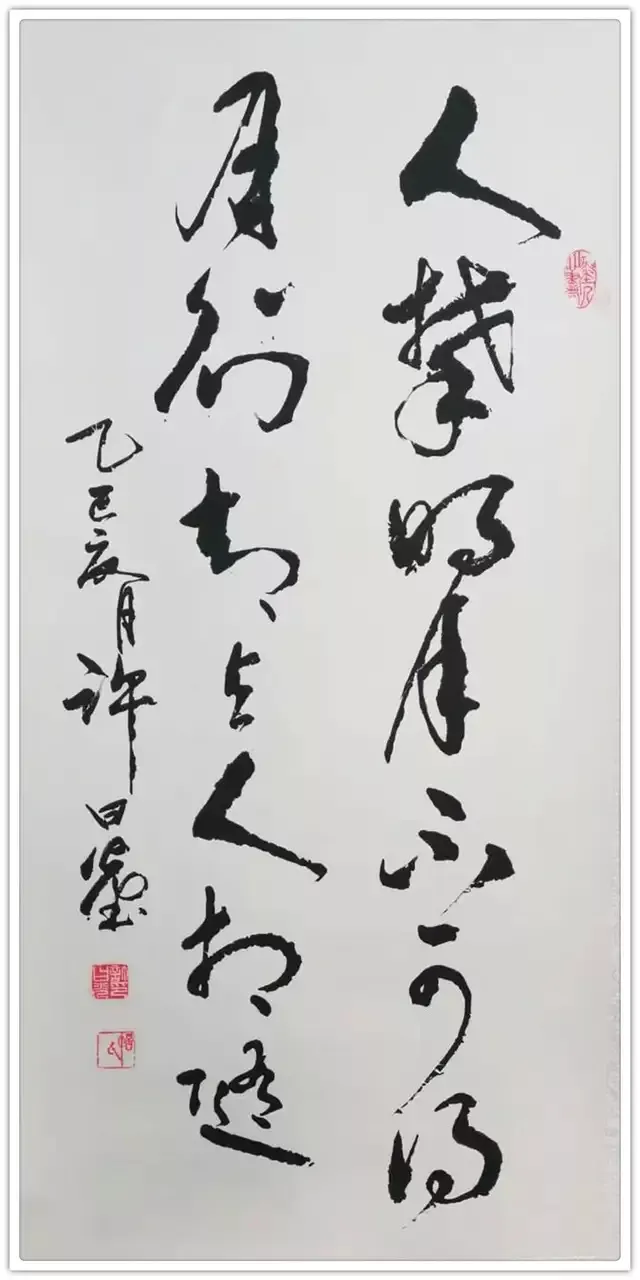 人攀明月不可得
月行却与人相随
乙巳亥月许日莹